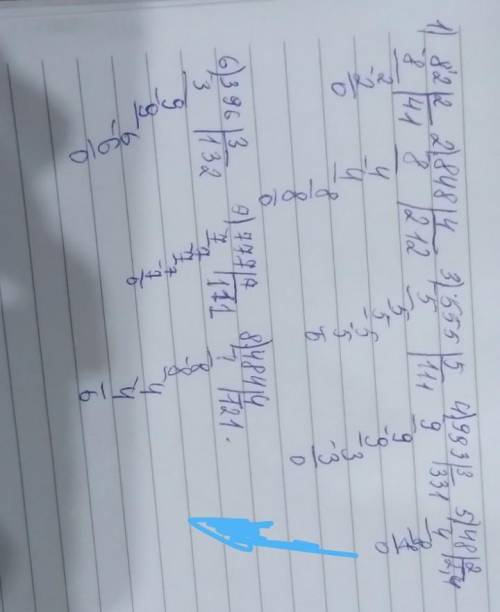 1) 82|2 2) 848|4 3) 555|5 4) 993|3 5) 48|2
-8 |41 8 |212 5 |111 9 |331 4 |24
-2 -4 -5 -9 -8
2 4 5 9 8
0 -8 -5 -3 0
8 5 3
0 0 0
6) 396|3 7) 777|7 8) 484|4
3 |132 7 |111 4 |121.
-9 -7 -8
9 7 8
-6 -7 4
6 7 4
0 0 0